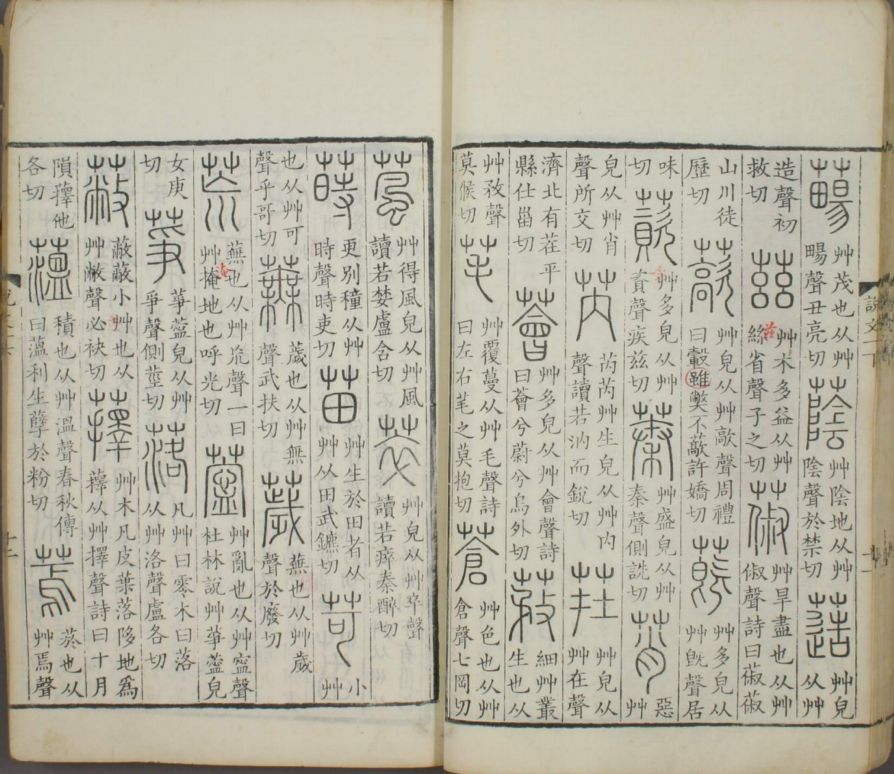 艸茂也从艸畼聲丑亮切蔭艸陰地从艸陰聲於禁切䔏艸皃从艸
造聲初救切茲艸木多益从艸絲省聲子之切䔦艸旱盡也从艸俶聲詩曰䔦䔦
山川徒歷切藃艸皃从艸歊聲周禮曰轂雖獘不藃許嬌切蔇艸多皃从艸旣聲居
味切薋艸多皃从艸資聲疾兹切蓁艸盛皃从艸秦聲側詵切莦惡艸
皃从艸肖聲所交切芮芮芮艸生皃从艸内聲讀若汭而銳切茬艸皃从艸在聲
濟北有茬平縣仕甾切薈艸多皃从艸會聲詩曰薈兮蔚兮烏外切細艸叢生也从
艸敄聲莫候切芼艸覆蔓从艸毛聲詩曰左右芼之莫抱切蒼艸色也从艸倉聲七岡切
說文一下
葻艸得風皃从艸風讀若婪盧含切萃艸皃从艸卒聲讀若瘁秦醉切
蒔更别種从艸時聲時吏切苗艸生於田者从艸从田武鑣切苛小艸
也从艸可聲乎哥切蕪薉也从艸無聲武扶切薉蕪也从艸歲聲於廢切
荒蕪也从艸㠩聲一曰艸掩地也呼光切薴艸亂也从艸寍聲杜林說艸莑薴皃
女庚切莑薴皃从艸爭聲側莖切落凡艸曰零木曰落从艸洛聲盧各切
蔽蔽蔽小艸也从艸敝聲必袂切蘀艸木凡皮葉落陊地爲蘀从艸擇聲詩曰十月
隕蘀他各切薀積也从艸温聲春秋傳曰薀利生孽於粉切蔫菸也从艸焉聲